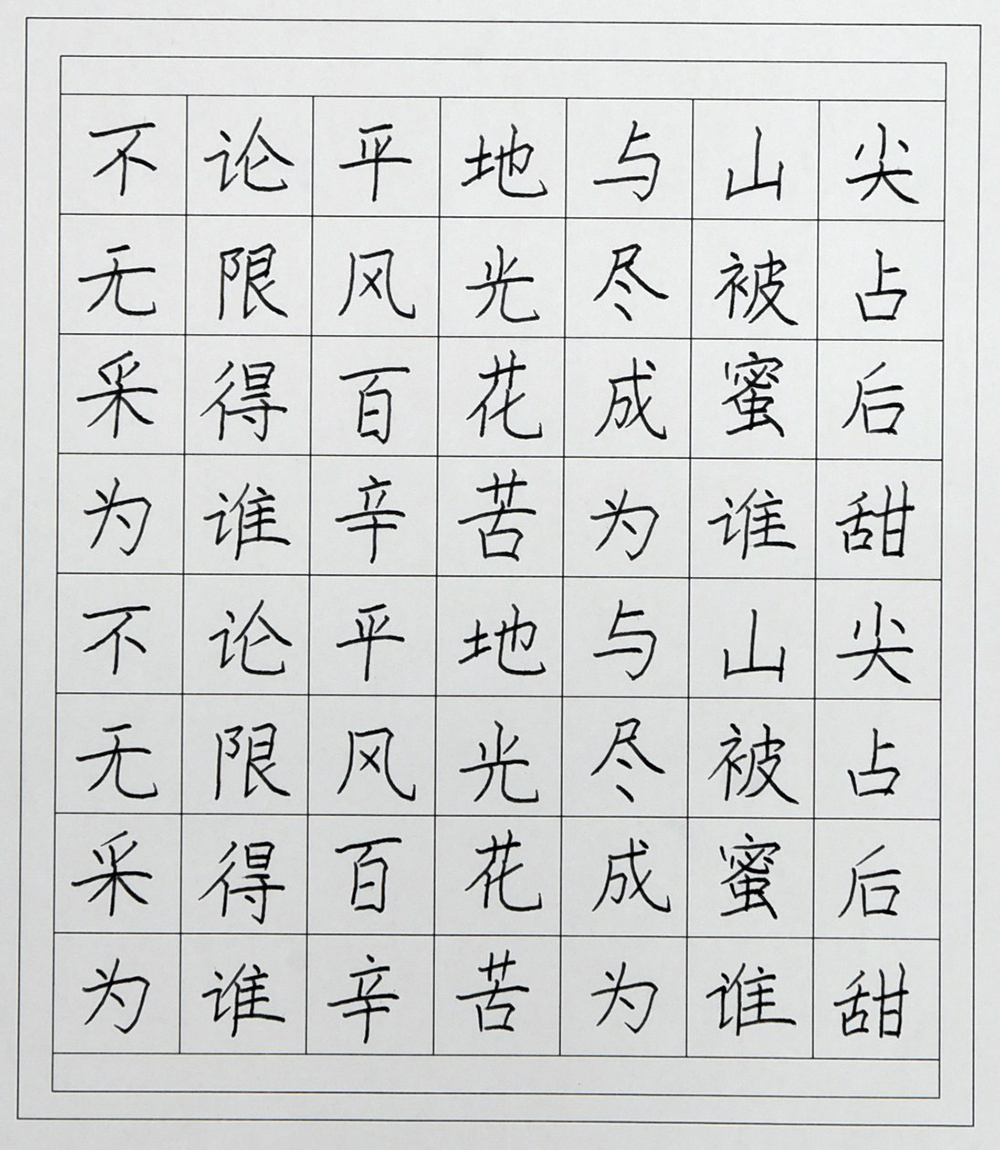 不论平地与山尖
无限风光尽被占
采得百花成蜜后
为谁辛苦为谁甜
不论平地与山尖
无限风光尽被占
采得百花成蜜后
为谁辛苦为谁甜